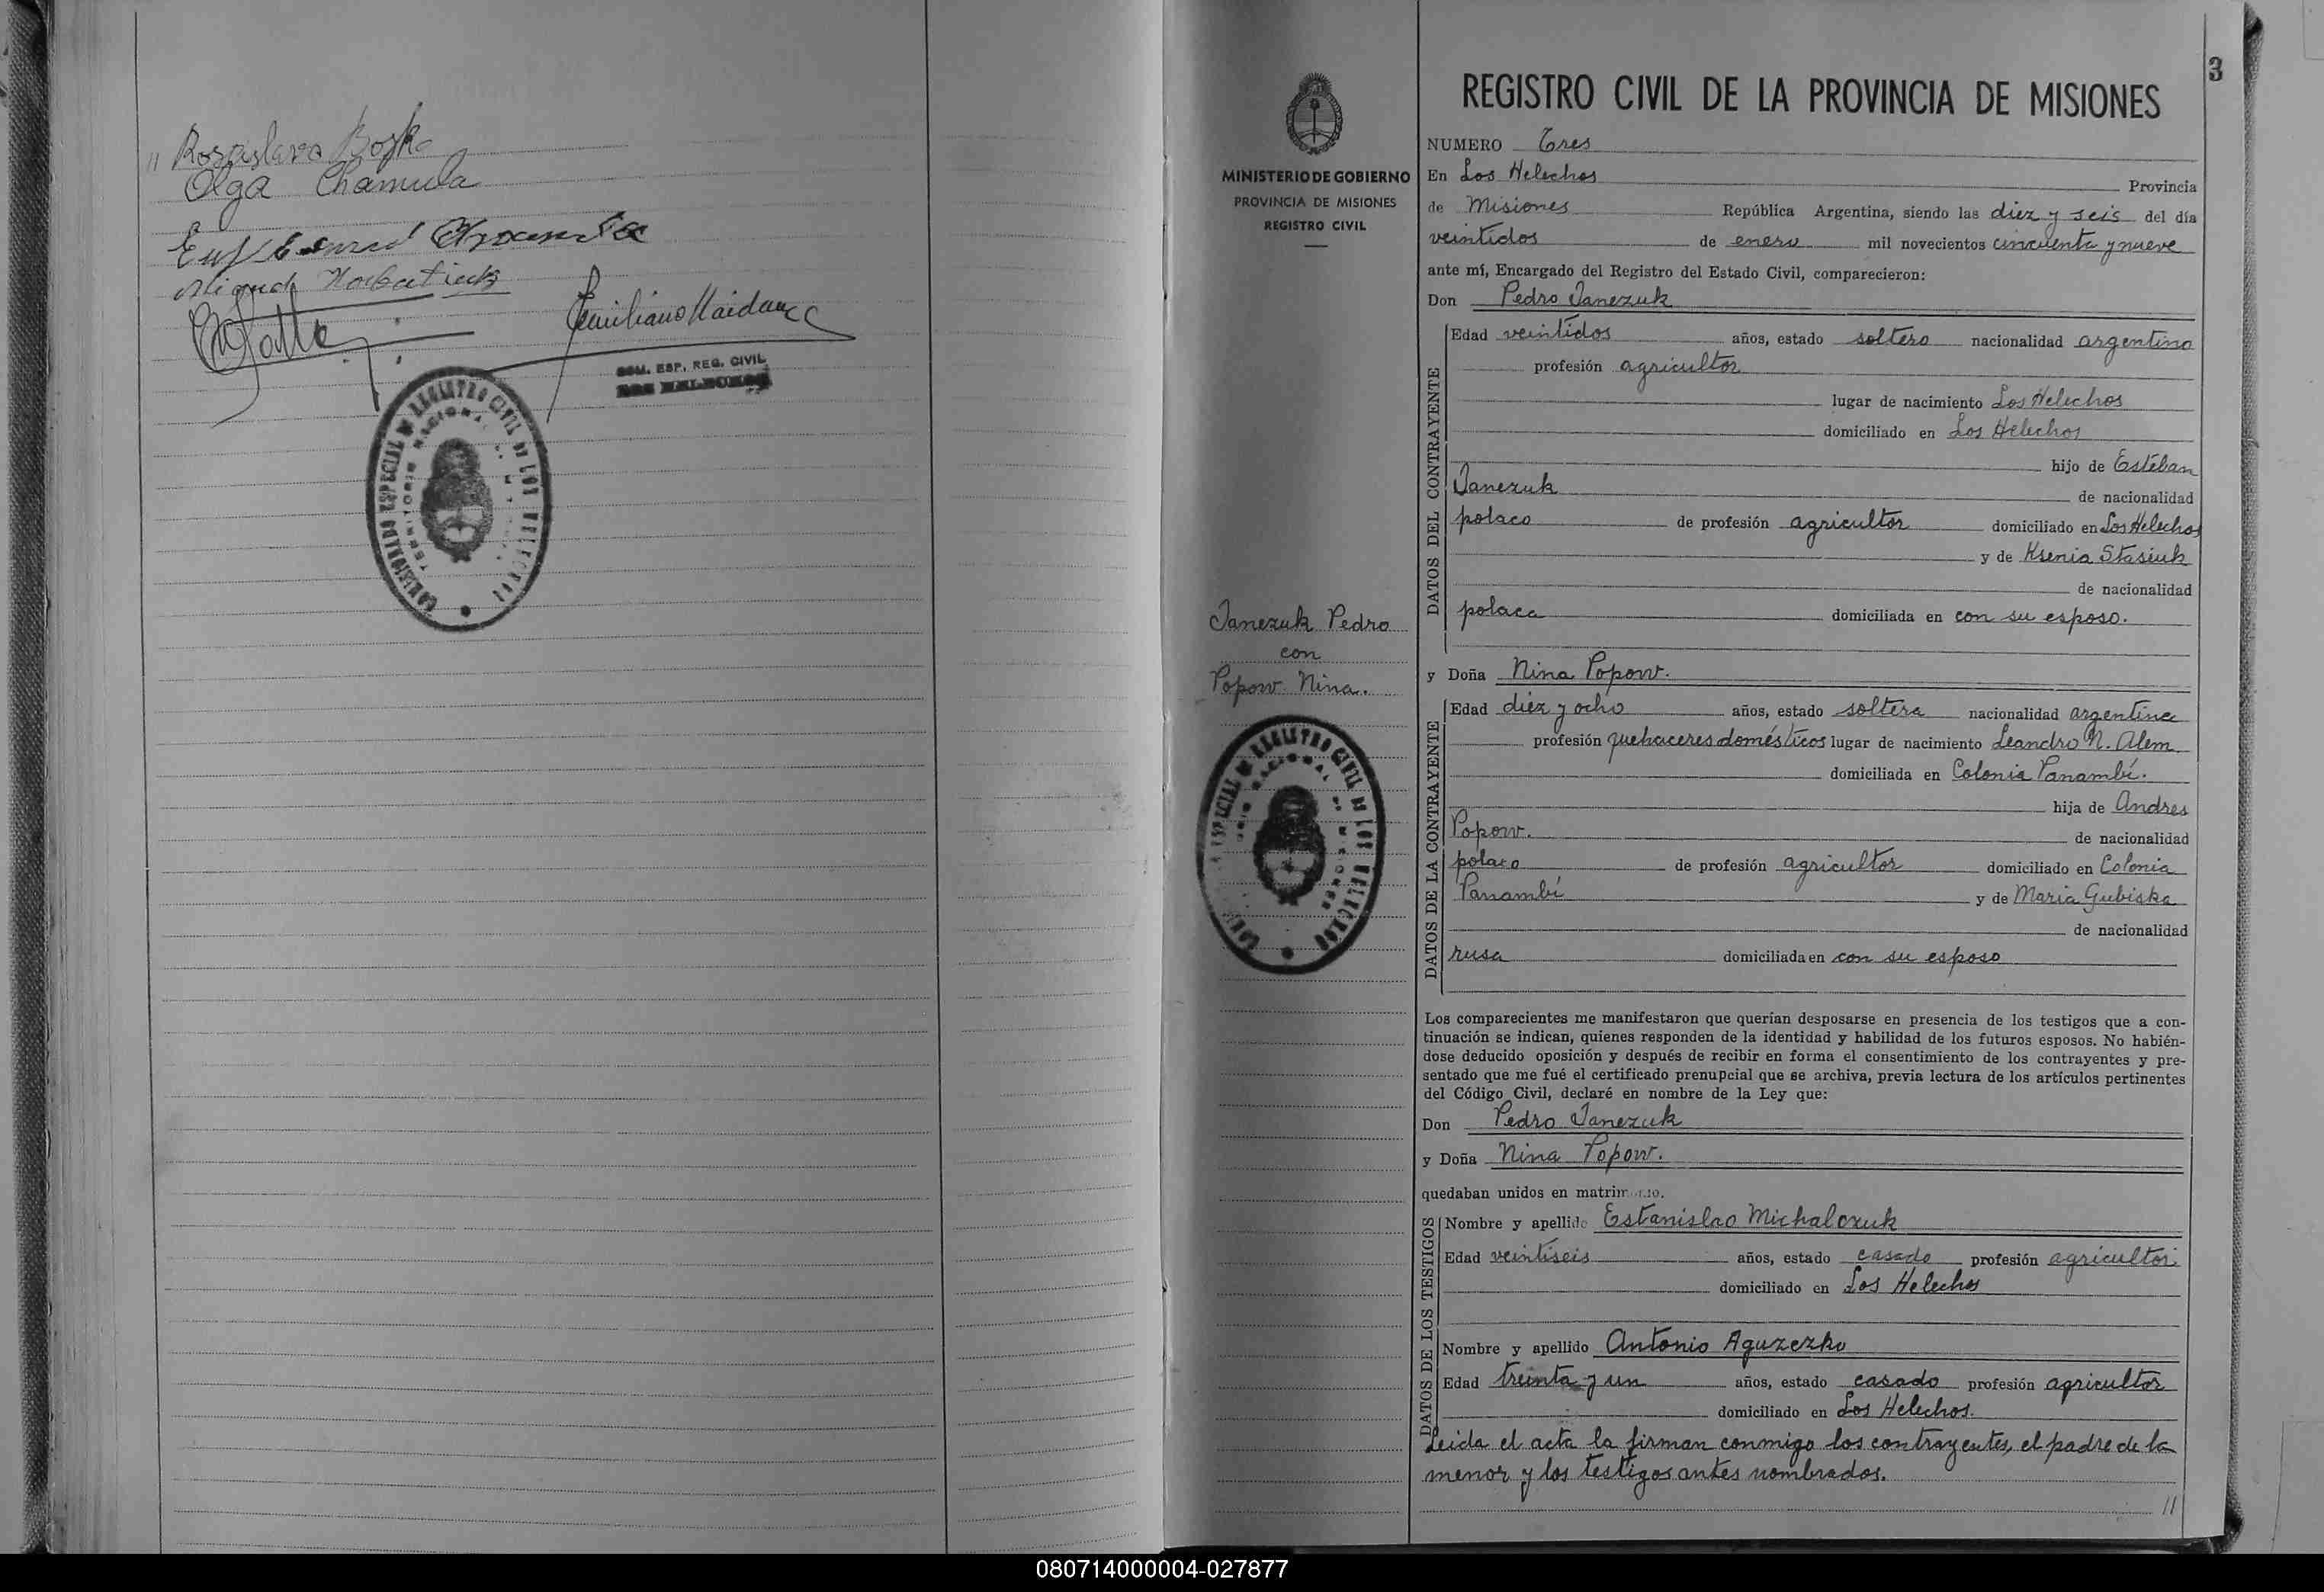 " Rosaslava Boyko
Olga Chamula
Miguel Horbatiuk
Emiliano Maidana
COM. ESP. REG. CIVIL
LOS HELECHOS
COMISARIADO ESPECIAL DE REGISTRO CIVIL DE LOS HELECHOS
TERRITORIO NACIONAL DE MISIONES
3
MINISTERIO DE GOBIERNO
PROVINCIA DE MISIONES
REGISTRO CIVIL
Janezuk Pedro
con
Popow Nina.
ESPECIAL DE REGISTRO CIVIL DE LOS HELECHOS
REGISTRO CIVIL DE LA PROVINCIA DE MISIONES
NUMERO Tres
En Los Helechos Provincia
de Misiones República Argentina, siendo las diez y seis del día
veintidos de enero mil novecientos cincuenta y nueve
ante mí, Encargado del Registro del Estado Civil, comparecieron:
Don Pedro Janezuk
DATOS DEL CONTRAYENTE
Edad veintidos años, estado soltero nacionalidad argentino
profesión agricultor
lugar de nacimiento Los Helechos
domiciliado en Los Helechos
hijo de Estéban
Janezuk de nacionalidad
polaco de profesión agricultor domiciliado en Los Helechos
y de Ksenia Stasiuk
de nacionalidad
polaca domiciliada en con su esposo.
y Doña Nina Popow.
DATOS DE LA CONTRAYENTE
Edad diez y ocho años, estado soltera nacionalidad argentina
profesión quehaceres domésticos lugar de nacimiento Leandro N. Alem
domiciliada en Colonia Panambí.
hija de Andres
Popow. de nacionalidad
polaco de profesión agricultor domiciliado en Colonia
Panambí y de Maria Gubiska
de nacionalidad
rusa domiciliada en con su esposo
Los comparecientes me manifestaron que querían desposarse en presencia de los testigos que a con-
tinuación se indican, quienes responden de la identidad y habilidad de los futuros esposos. No habién-
dose deducido oposición y después de recibir en forma el consentimiento de los contrayentes y pre-
sentado que me fué el certificado prenupcial que se archiva, previa lectura de los artículos pertinentes
del Código Civil, declaré en nombre de la Ley que:
Don Pedro Janezuk
y Doña Nina Popow.
quedaban unidos en matrimonio.
DATOS DE LOS TESTIGOS
Nombre y apellido Estanislao Michalczuk
Edad veintiseis años, estado casado profesión agricultor
domiciliado en Los Helechos
Nombre y apellido Antonio Aguzezko
Edad treinta y un años, estado casado profesión agricultor
domiciliado en Los Helechos.
Leida el acta la firman conmigo los contrayentes, el padre de la
menor y los testigos antes nombrados.
//
080714000004-027877